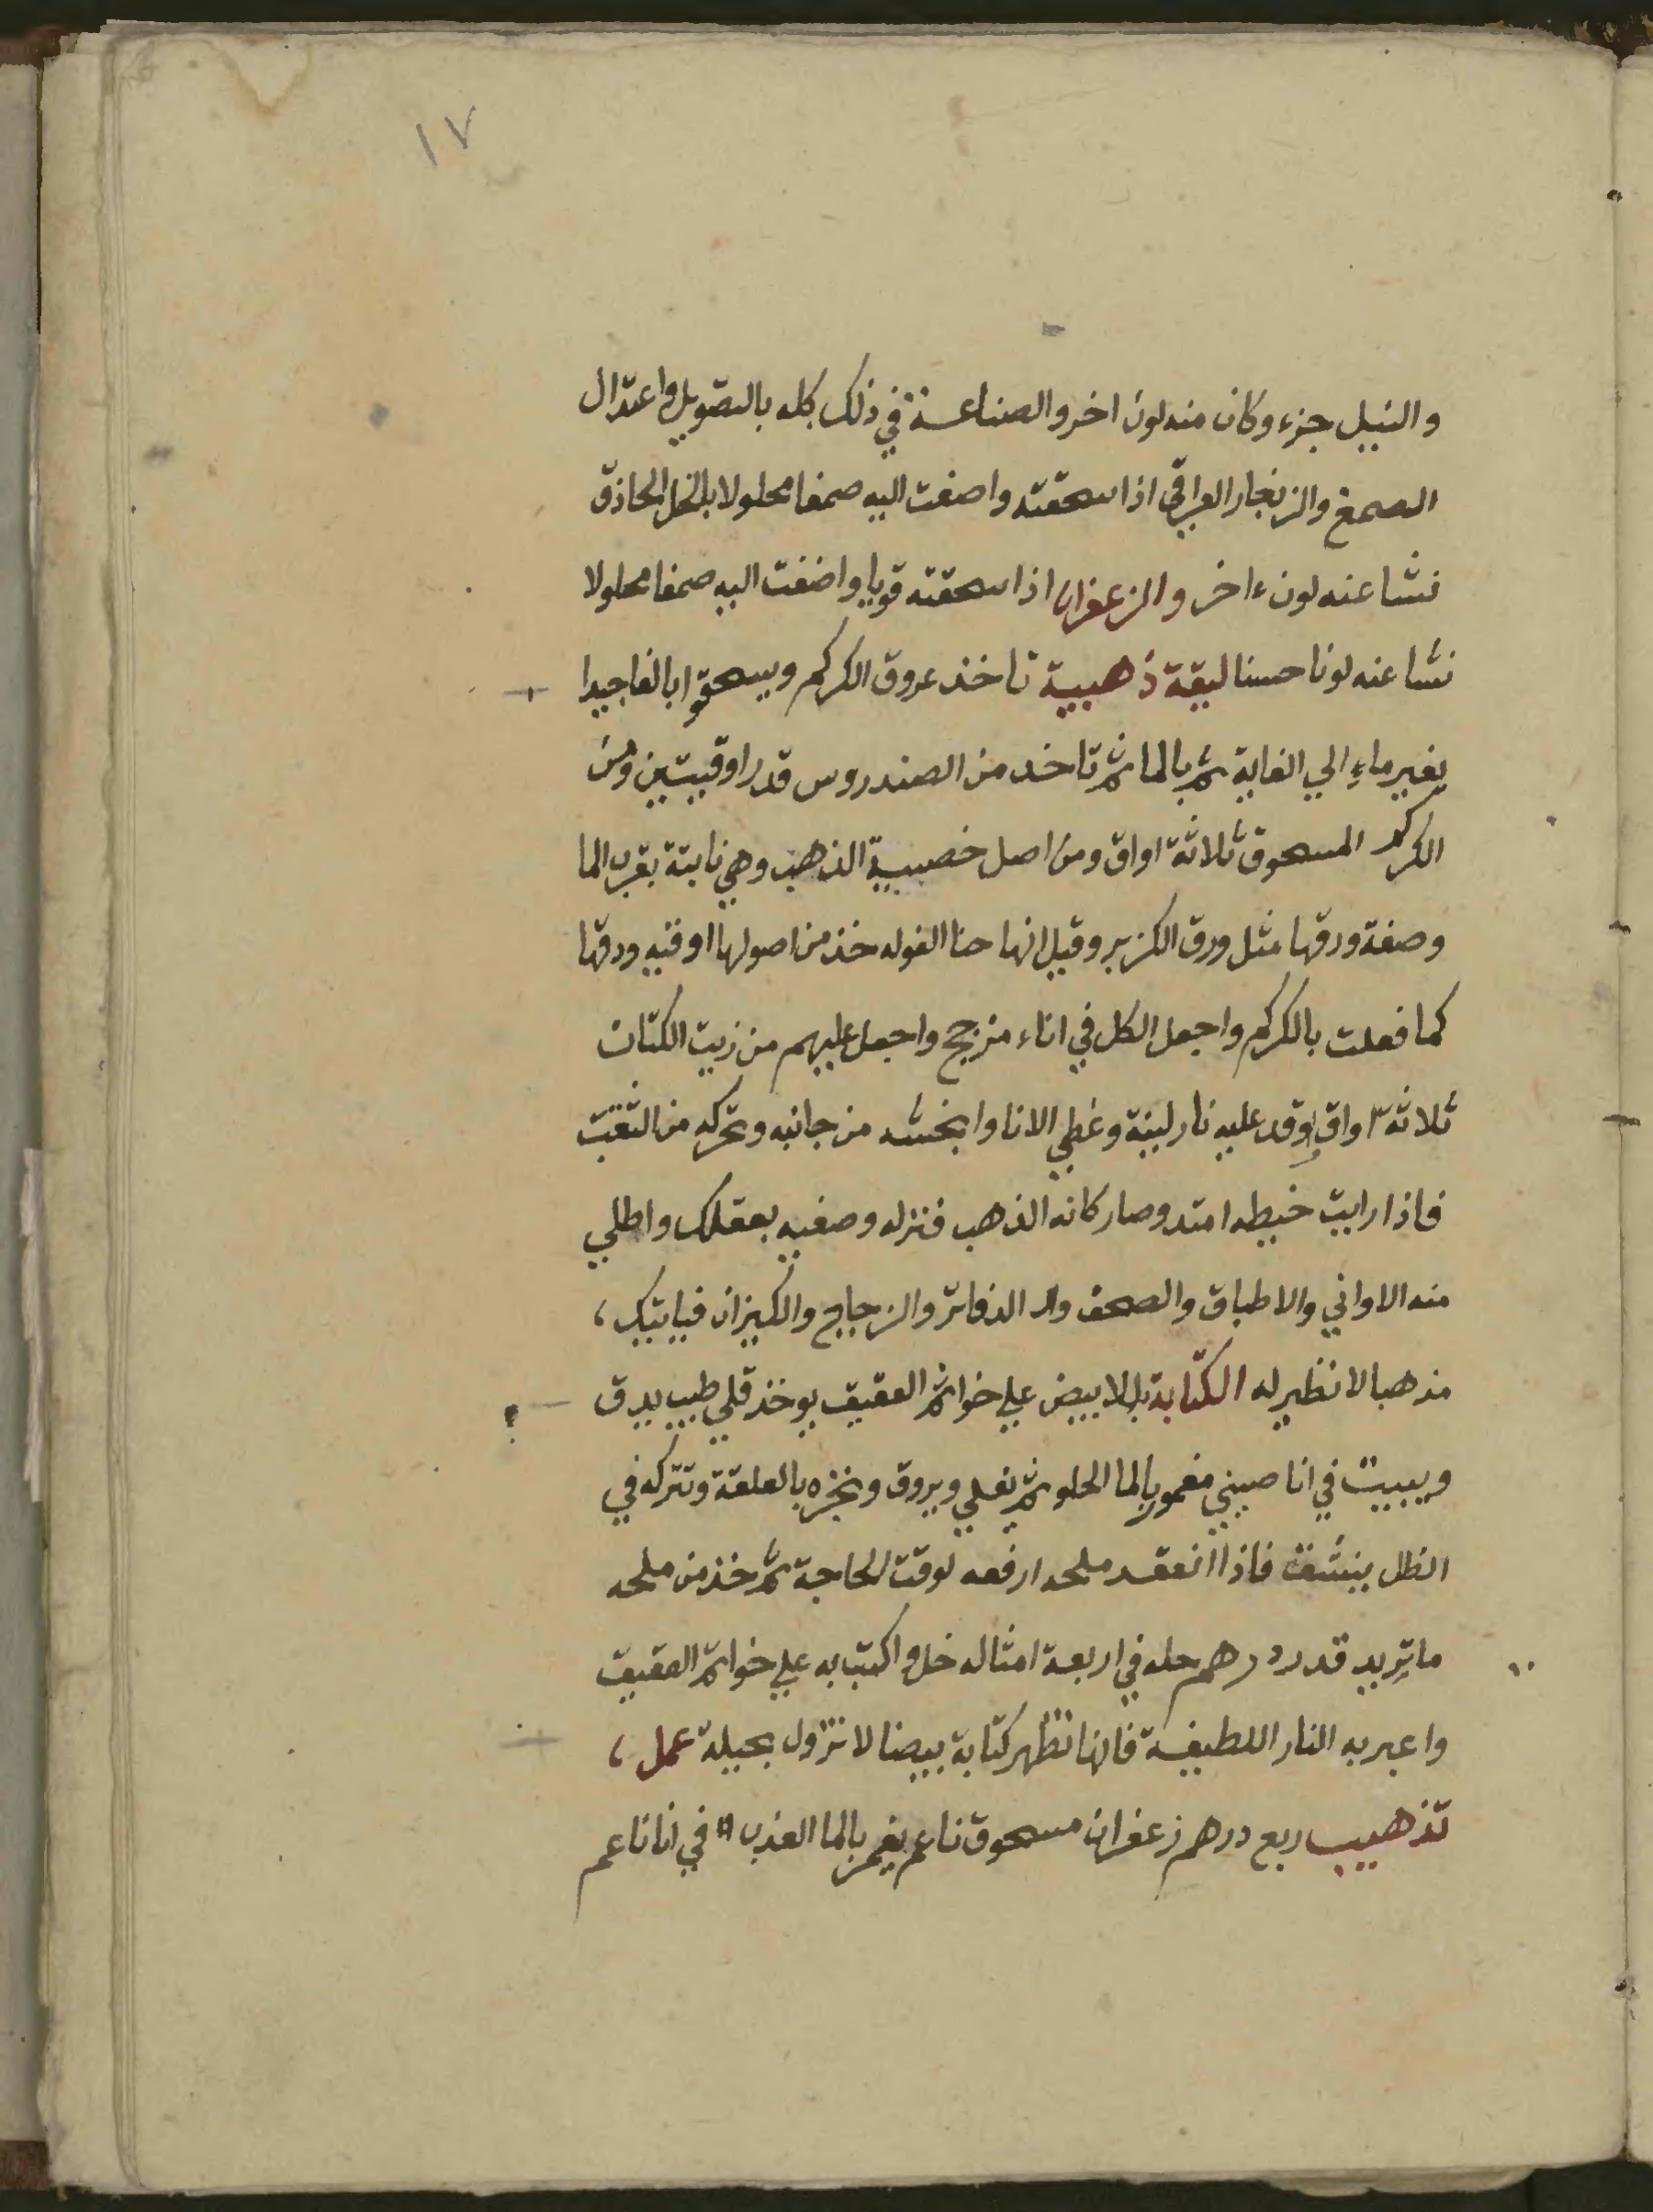 ١٧
والنيل جزء وكان منه لون اخر والصناعة في ذلك كله بالتصويل واعتدال
الصمغ والزنجار العراقي اذا سحقته واضفت اليه صمغا محلولا بالخل الحاذق
نشا عنه لون ءاخر والزعفران اذا سحقته قويا واضفت اليه صمغا محلولا
نشا عنه لونا حسنا ليقة ذهبية تاخذ عروق الكركم ويسحقوا بالغا جيدا
بغير ماء الي الغاية ثم بالما ثم تاخد من الصندروس قدر اوقيتين ومن
الكركم المسحوق ثلاثة اواق ومن اصل خصيبة الذهب وهي نابتة بقرب الما
وصفة ورقها مثل ورق الكزبر وقيل انها حنا الغوله خذ من اصولها اوقيه ودقها
كما فعلت بالكركم واجعل الكل في اناء مزجج واجعل عليهم من زيت الكتان
ثلاثة اواق وقد عليه نار لينة وغطي الانا وابخشه من جانبه وتحركه من الثقب
فاذا رايت خيطه امتد وصار كانه الذهب فنزله وصفيه بعقلك واطلي
منه الاواني والاطباق والصحف والدفاتر والزجاج والكيزان فياتيك
مذهبا لا نظير له الكتابة بالابيض علي خواتم العقيق يوخذ قلي طيب يدق
ويبيت في انا صيني مغمور بالما الحلو ثم يغلي ويروق وتجره بالعلقة وتتركه في
الظل ينشف فاذا انعقد ملحه ارفعه لوقت الحاجة ثم خذ من ملحه
ما تريد قدر درهم حله في اربعة امثاله خل واكتب به علي خواتم العقيق
واعبر به النار اللطيفة فانها تظهر كتابة بيضا لا تزول بحيلة عمل
تذهيب ربع درهم زعفران مسحوق ناعم يغمر بالما العذب في انا ناعم